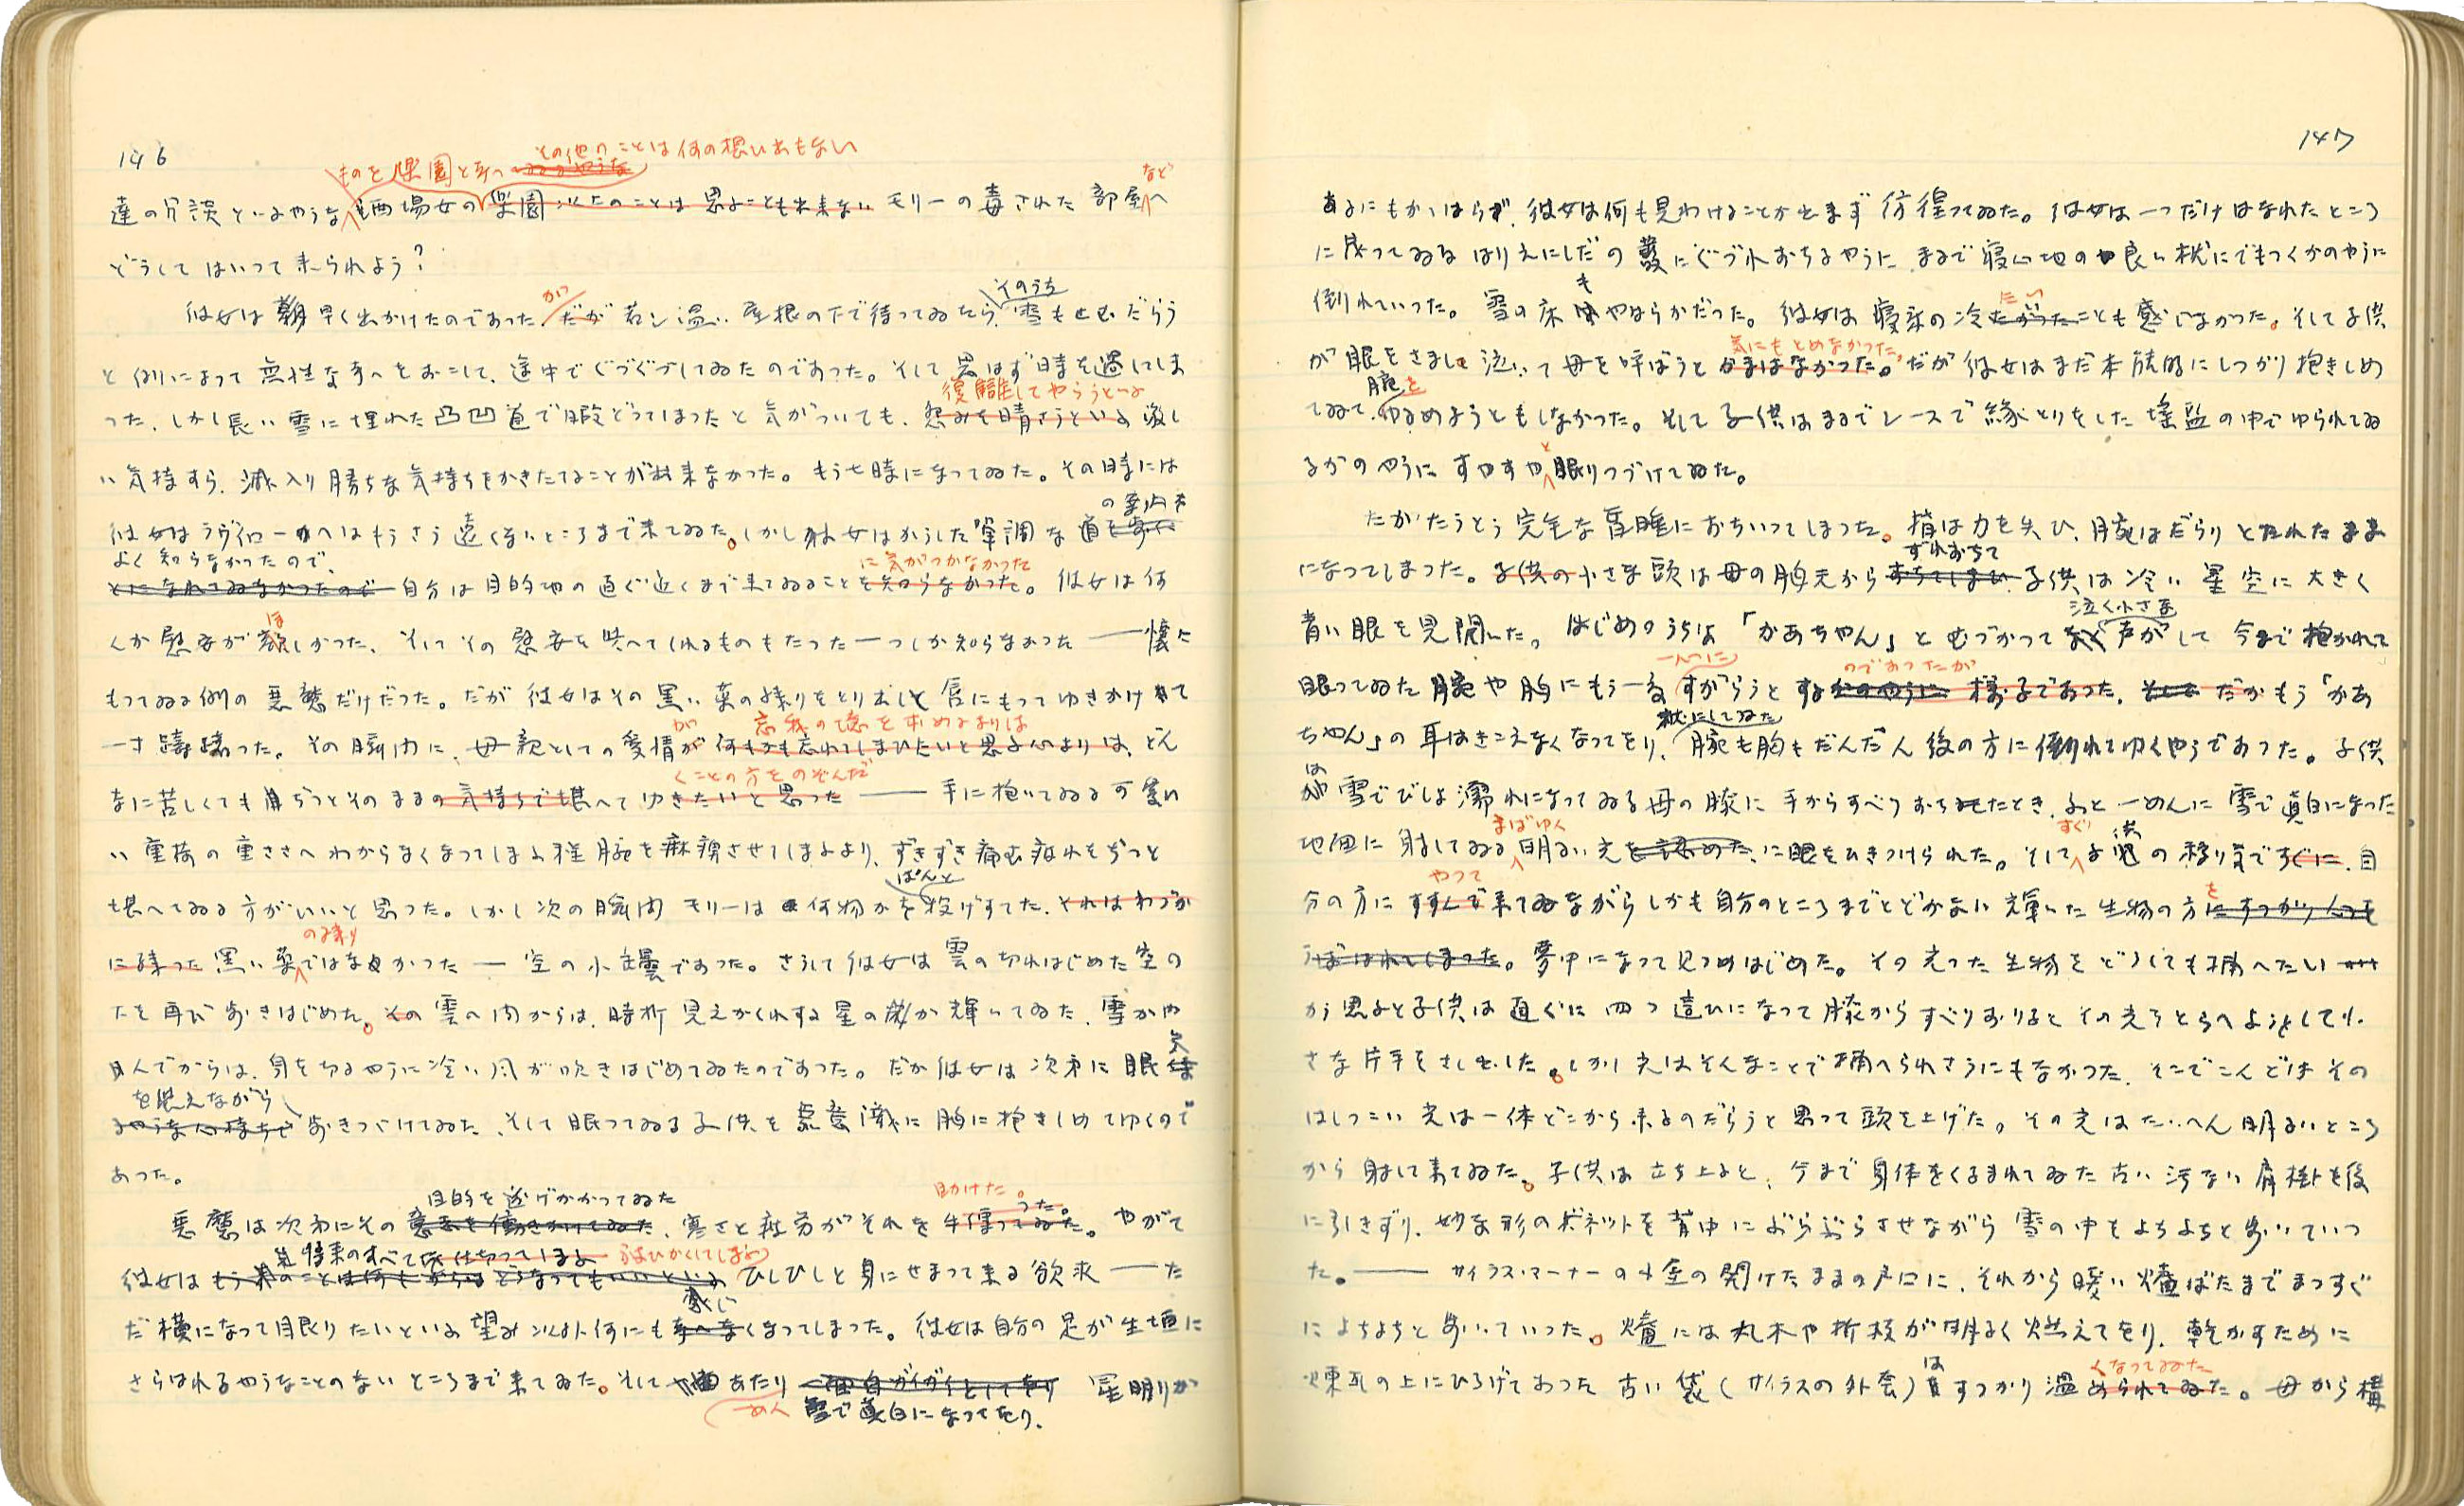 146
その他のことは何の想ひ出もない
ものを楽園と云つ
など
達の冗談といふやうな酒場女の楽園以上のことは思ふことも出来ないモリーの毒された部屋へ
どうしてはいつて来られよう?
かつ そのうち
彼女は朝早く出かけたのであつた だが若し温い屋根の下で待つてゐたら、雪もやむだらう
と例によつて無性な考へをおこして、途中でぐづぐづしてゐたのであつた。そして思はず時を過してしま
復讐してやらうといふ
つた、しかし長い雪に埋れた凸凹道で暇どつてしまつたと気がついても、怨みを晴さうといふ激し
い気持すら、滅入り勝ちな気持ちをかきたてることが出来なかつた。もう七時になつてゐた。その時には
の案内を
彼女はラヴィローへはもうさう遠くないところまで来てゐた。しかし彼女はかうした単調な道
よく知らなかつたので、 に気がつかなかつた
とになれてゐなかつたので 自分は目的地の直ぐ近くまで来てゐることを知らなかつた。彼女は何
ほ
くか慰安が欲しかつた、そしてその慰安を与へてくれるものもたつた一つしか知らなかつた――懐に
もつてゐる例の悪魔だけだつた。だが彼女はその黒い薬の残りをとり出して唇にもつてゆきかけて
が 忘我の境を求めるよりは
一寸躊躇つた。その瞬間に、母親としての愛情が何もかも忘れてしまひたいと思ふ心よりは、どん
くことの方をのぞんだ
なに苦しくてもぢつとそのままの気持ちで堪へてゆきたいと思つた――手に抱いてゐる可愛い
い重荷の重さへわからなくなつてしまふ程腕を麻痺させてしまふより、ずきずき痛む疲れをぢつと
ぽんと
堪へてゐる方がいいと思つた。しかし次の瞬間モリーは何物かを投げすてた、それはわづか
の残り
に残つた黒い薬ではなかつた―空の小壜であつた。さうして彼女は雲の切れはじめた空の
下を再び歩きはじめた。その雲の間からは、時折見えかくれする星の光が輝いてゐた、雪がや
んでからは、身を切るやうに冷い風が吹きはじめてゐたのであつた。だが彼女は次第に眠
を堪えながら
るやうな心持ちで歩きつづけてゐた、そして眠つてゐる子供を無意識に胸に抱きしめてゆくので
あつた。
目的を遂げかかつてゐた 助けた。
悪魔は次第にその意志を働きかけてゐた、寒さと疲労がそれを手伝つてゐた。やがて
将来のすべては仕切つてしまふ
彼女はもう先のことは何もかもどうなつてもいいといふ ひしひしと身にせまつて来る欲求――た
感じ
だ横になつて眠りたいといふ望み以外何にも考へなくなつてしまつた。彼女は自分の足が生垣に
さらはれるやうなことのないところまで来てゐた。そしてあたり一面白ガイガイとしてをり 星明りが
めん 雪で真白になつてをり、
147
あるにもかゝはらず、彼女は何も見わけることが出来ず彷徨つてゐた。彼女は一つだけはなれたところ
に茂つてゐるはりえにしだの叢にくづれおちるやうに、まるで寝心地の良い枕にでもつくかのやうに
も たい
倒れていつた。雪の床はやはらかだつた。彼女は寝床の冷たがつたことも感じなかつた。そして子供
気にもとめなかつた。
が眼をさまして泣いて母を呼ばうとかまはなかつた。だが彼女はまだ本能的にしつかり抱きしめ
腕を
てゐて、ゆるめようともしなかつた。そして子供はまるでレースで縁とりをした揺籃の中でゆられてゐ
と
るかのやうにすやすや眠りつづけてゐた。
だがたうとう完全な昏睡におちいつてしまつた。指は力を失ひ、腕はだらりとたれたまま
ずれおちて
になつてしまつた。子供の小さな頭は母の胸元からおちてしまひ、子供は冷い星空に大きく
泣く小さな
青い眼を見開いた。はじめのうちは「かあちやん」とむづかつてなく声がして今まで抱かれて
一心に のであつたが
眠つてゐた腕や胸にもう一度すがらうとするかのやうに様子であつた、そして だがもう「かあ
枕にしてゐた
ちやん」の耳はきこえなくなつてをり、腕も胸もだんだん後の方に倒れてゆくやうであつた。子供
は
が雪でびしよ濡れになつてゐる母の膝に手からすべりおちたとき、ふと一めんに雪で真白になつた
まばゆく すぐ 供
地面に射してゐる明るい光を認めた、に眼をひきつけられた。そして子児の移り気ですぐに、自
やつて を
分の方にすすんで来てゐながらしかも自分のところまでとどかない輝いた生物の方にすつかり心を
うばはれてしまつた。夢中になつて見つめはじめた。その光つた生物をどうしても捕へたい
かう思ふと子供は直ぐに四つ這ひになつて膝からすべりおりるとその光をとらへようとして小
さな片手をさし出した。しかし光はそんなことで捕へられさうにもなかつた、そこでこんどはその
はしつこい光は一体どこから来るのだらうと思つて頭を上げた。その光はたいへん明るいところ
から射して来てゐた。子供は立ち上ると、今まで身体をくるまれてゐた古い汚ない肩掛を後
に引きずり、妙な形のボネットを背中にぶらぶらさせながら雪の中をよちよちと歩いていつ
た。―― サイラス・マーナーの小屋の開けたままの戸口に、それから暖い炉ばたまでまつすぐ
によちよちと歩いていつた。炉には丸木や折枝が明るく燃えてをり、乾かすために
は くなつてゐた
煉瓦の上にひろげてあつた古い袋(サイラスの外套)はすつかり温められてゐた。母から構